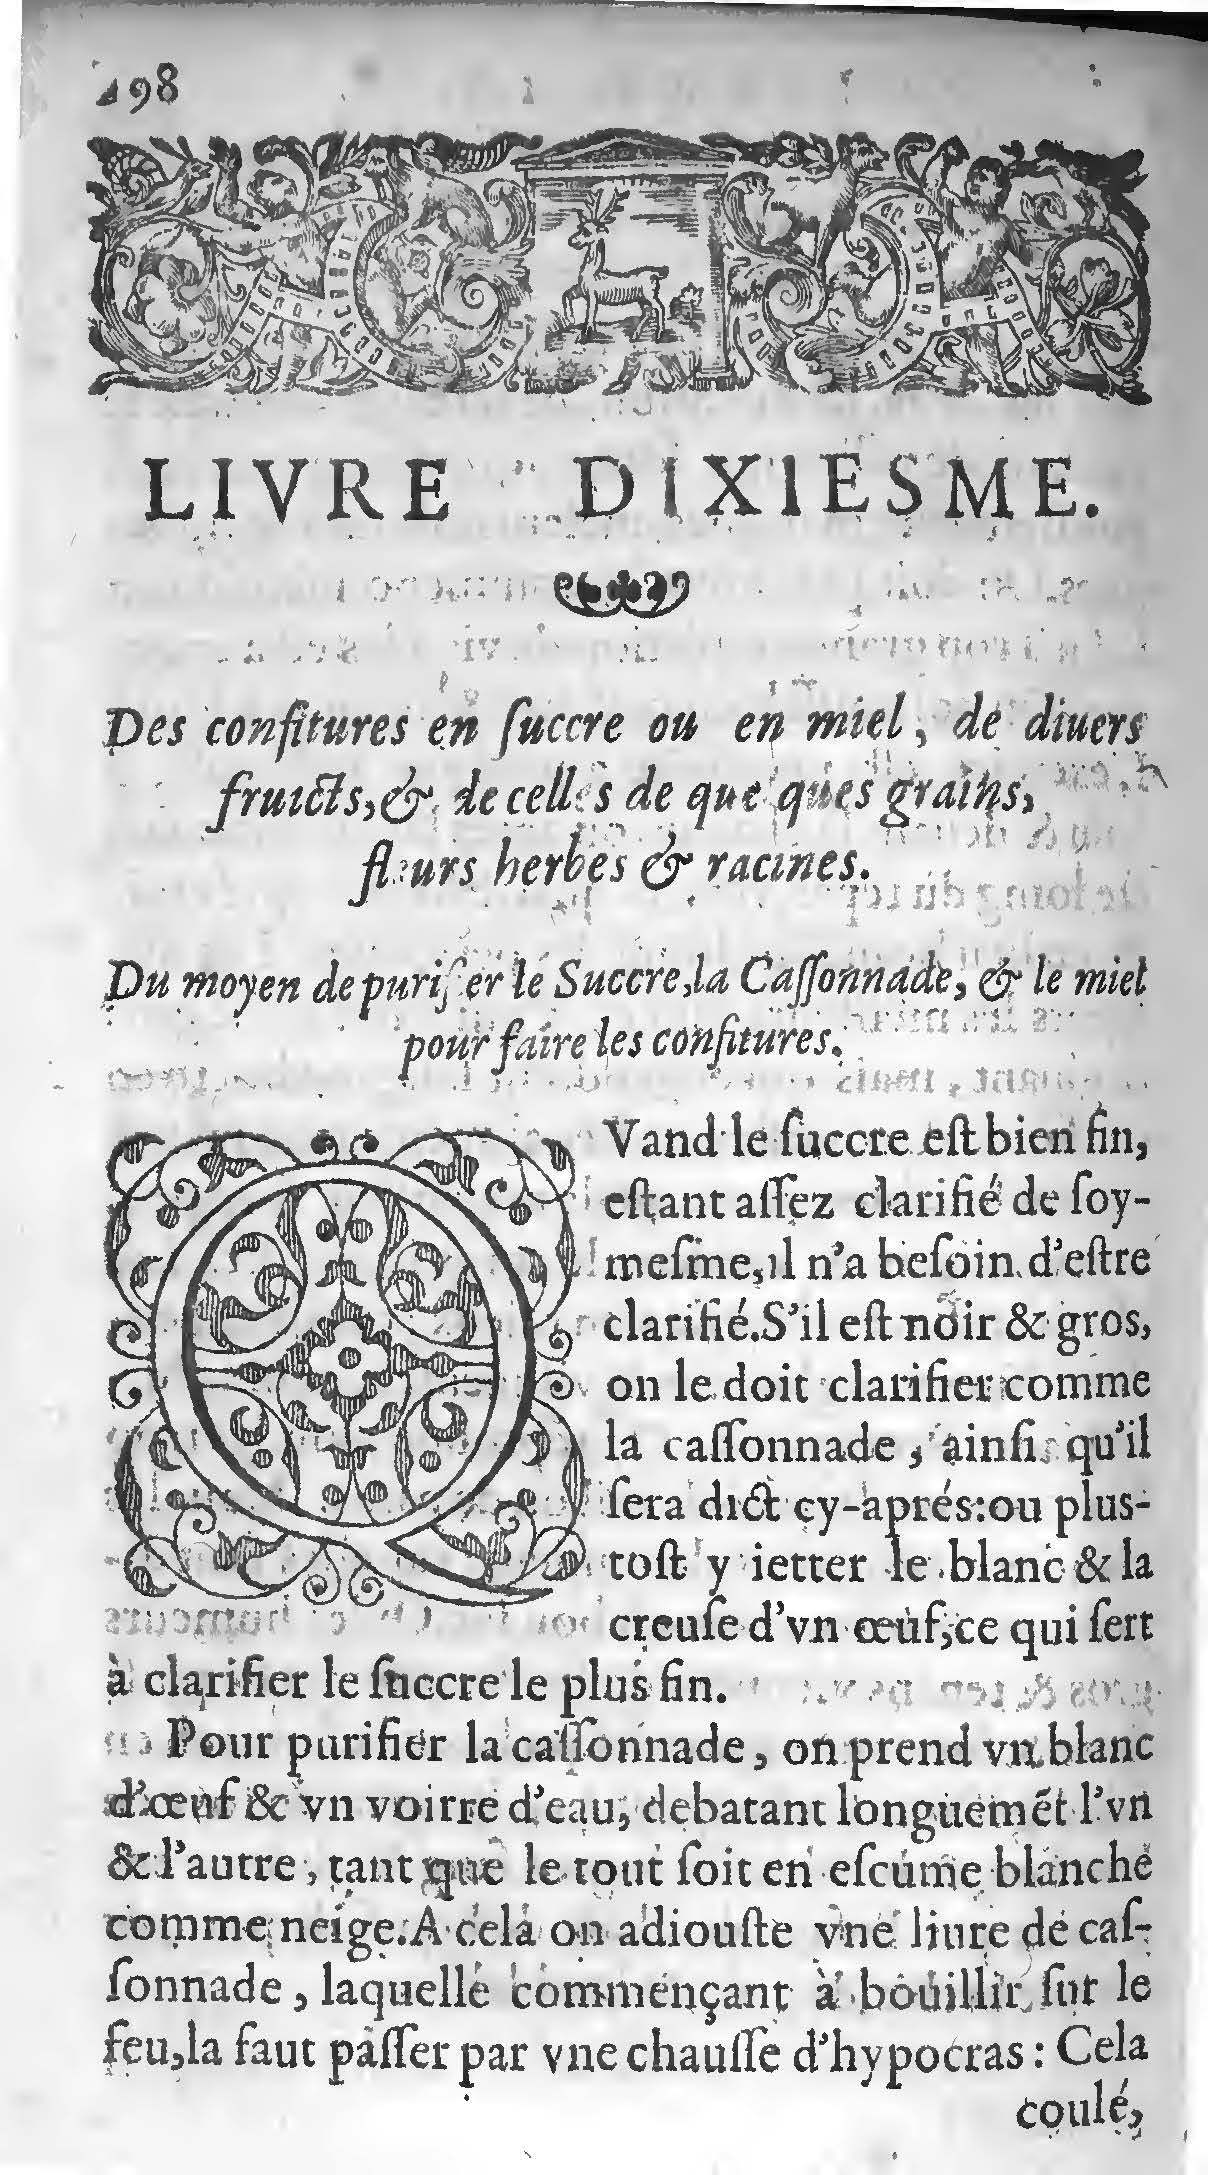 198
LIVRE DIXIESME.
Des confitures en ſuccre ou en miel, de diuers
fruicts, & de celles de quelques grains,
fleurs herbes & racines.
Du moyen de purifier le Succre, la Caſſonnade, & le miel
pour faire les confitures.
QVand le ſuccre eſt bien fin,
eſtant aſſez clarifié de ſoy-
meſme, il n'a beſoin d'eſtre
clarifié. S'il eſt noir & gros,
on le doit clarifier comme
la caſſonnade, ainſi qu'il
ſera dict cy-aprés: ou plus-
toſt y ietter le blanc & la
creuſe d'vn œuf, ce qui ſert
à clarifier le ſuccre le plus fin.
Pour purifier la caſſonnade, on prend vn blanc
d'œuf & vn voirre d'eau, debatant longuemẽt l'vn
& l'autre, tant que le tout ſoit en eſcume blanche
comme neige. A cela on adiouſte vne liure de caſ-
ſonnade, laquelle commençant à bouillir ſur le
feu, la faut paſſer par vne chauſſe d'hypocras: Cela
coulé,